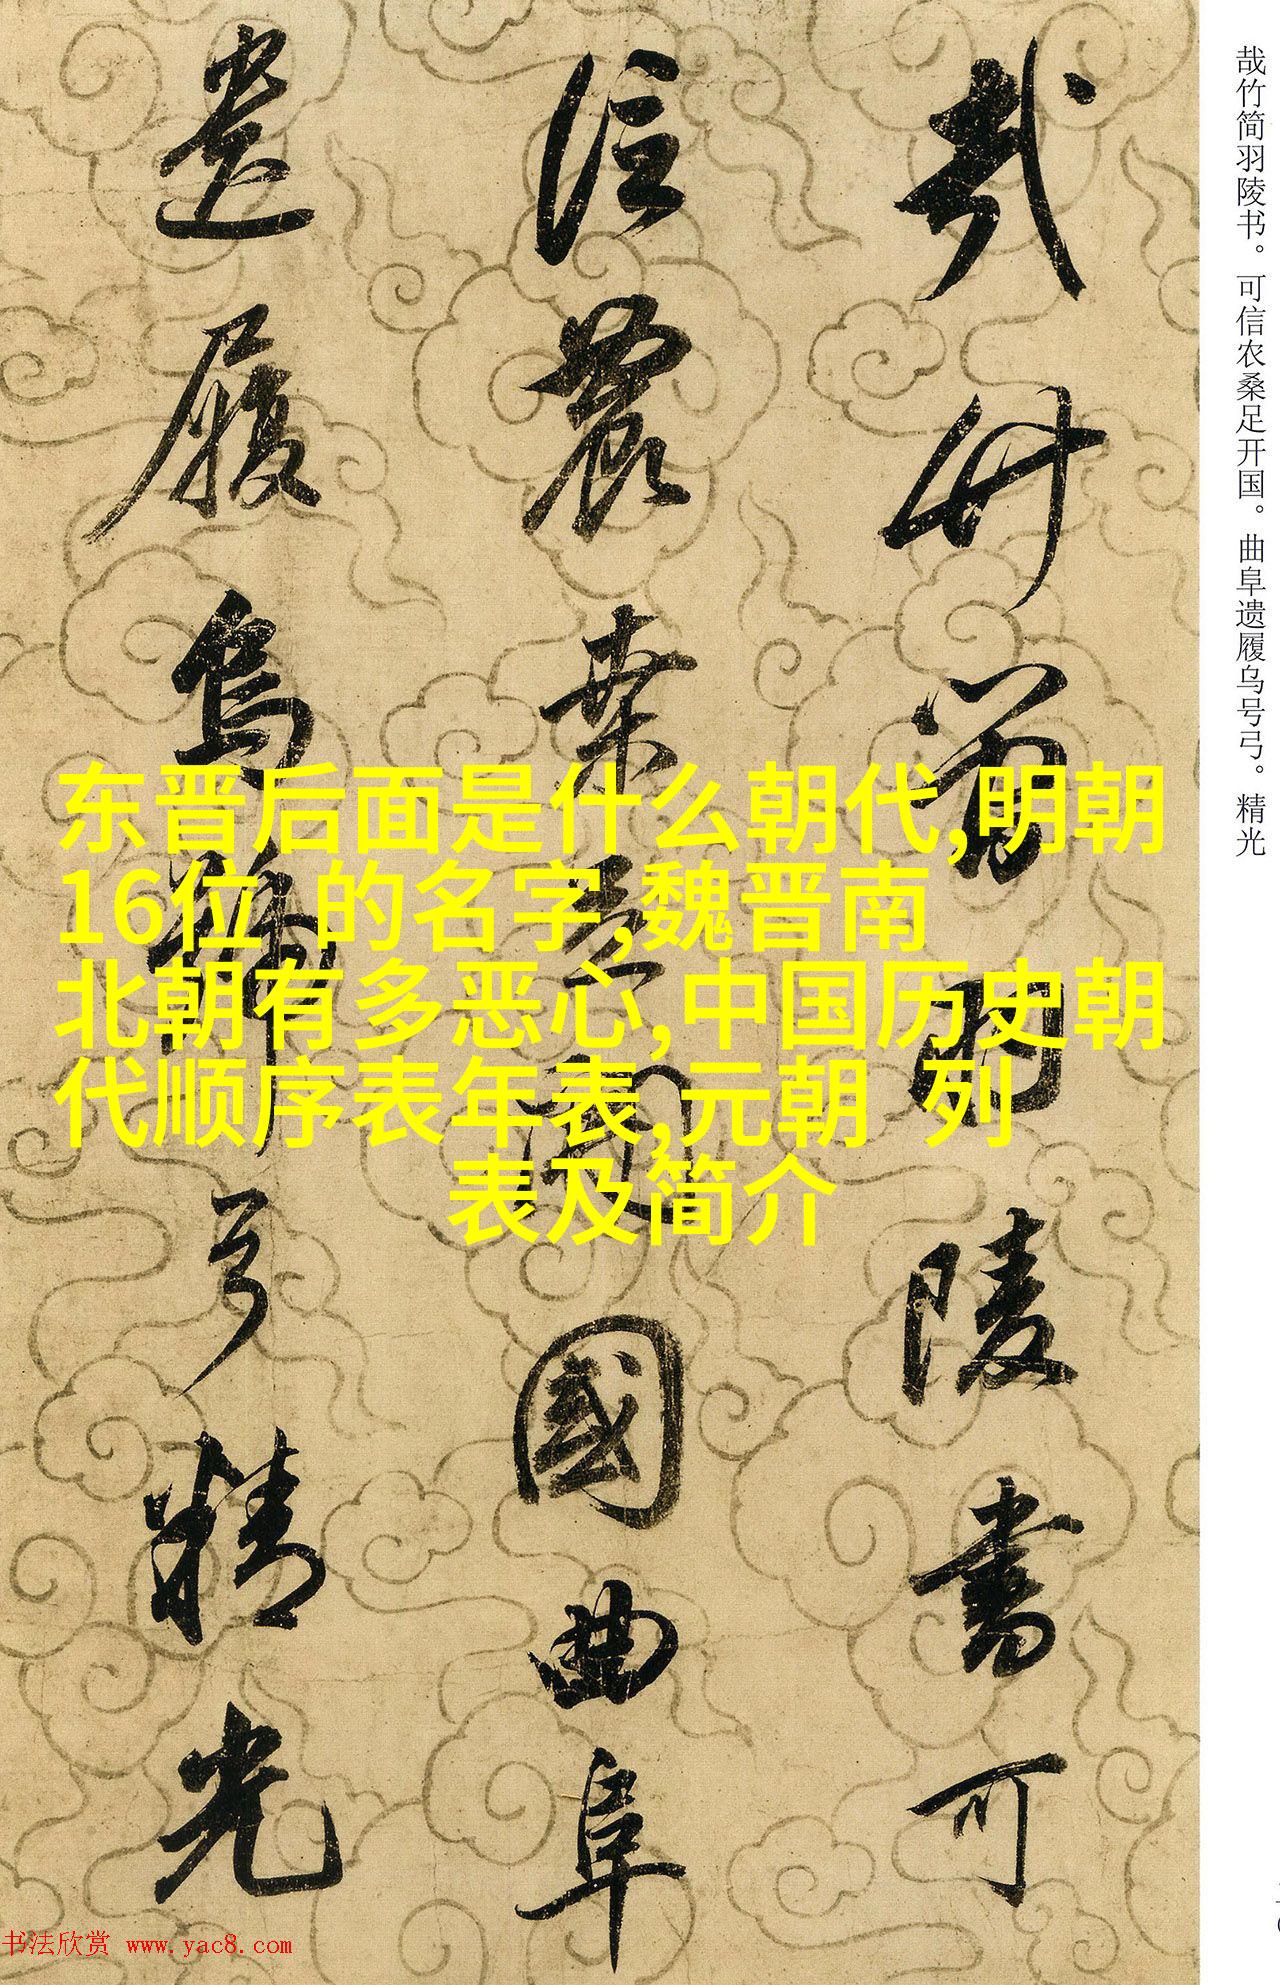 哉竹简羽陵书可
信农桑足开國曲阜
遗履乌号弓精光
哉竹简羽陵书。可信农桑足开国。曲阜遗履乌号弓。精光
东晋后面是什么朝代,明朝
16位 的名字,魏晋南
北朝有多恶心,中国历史朝
代顺序表年表,元朝 列
表及简介
书法欣赏 www.yac8.com